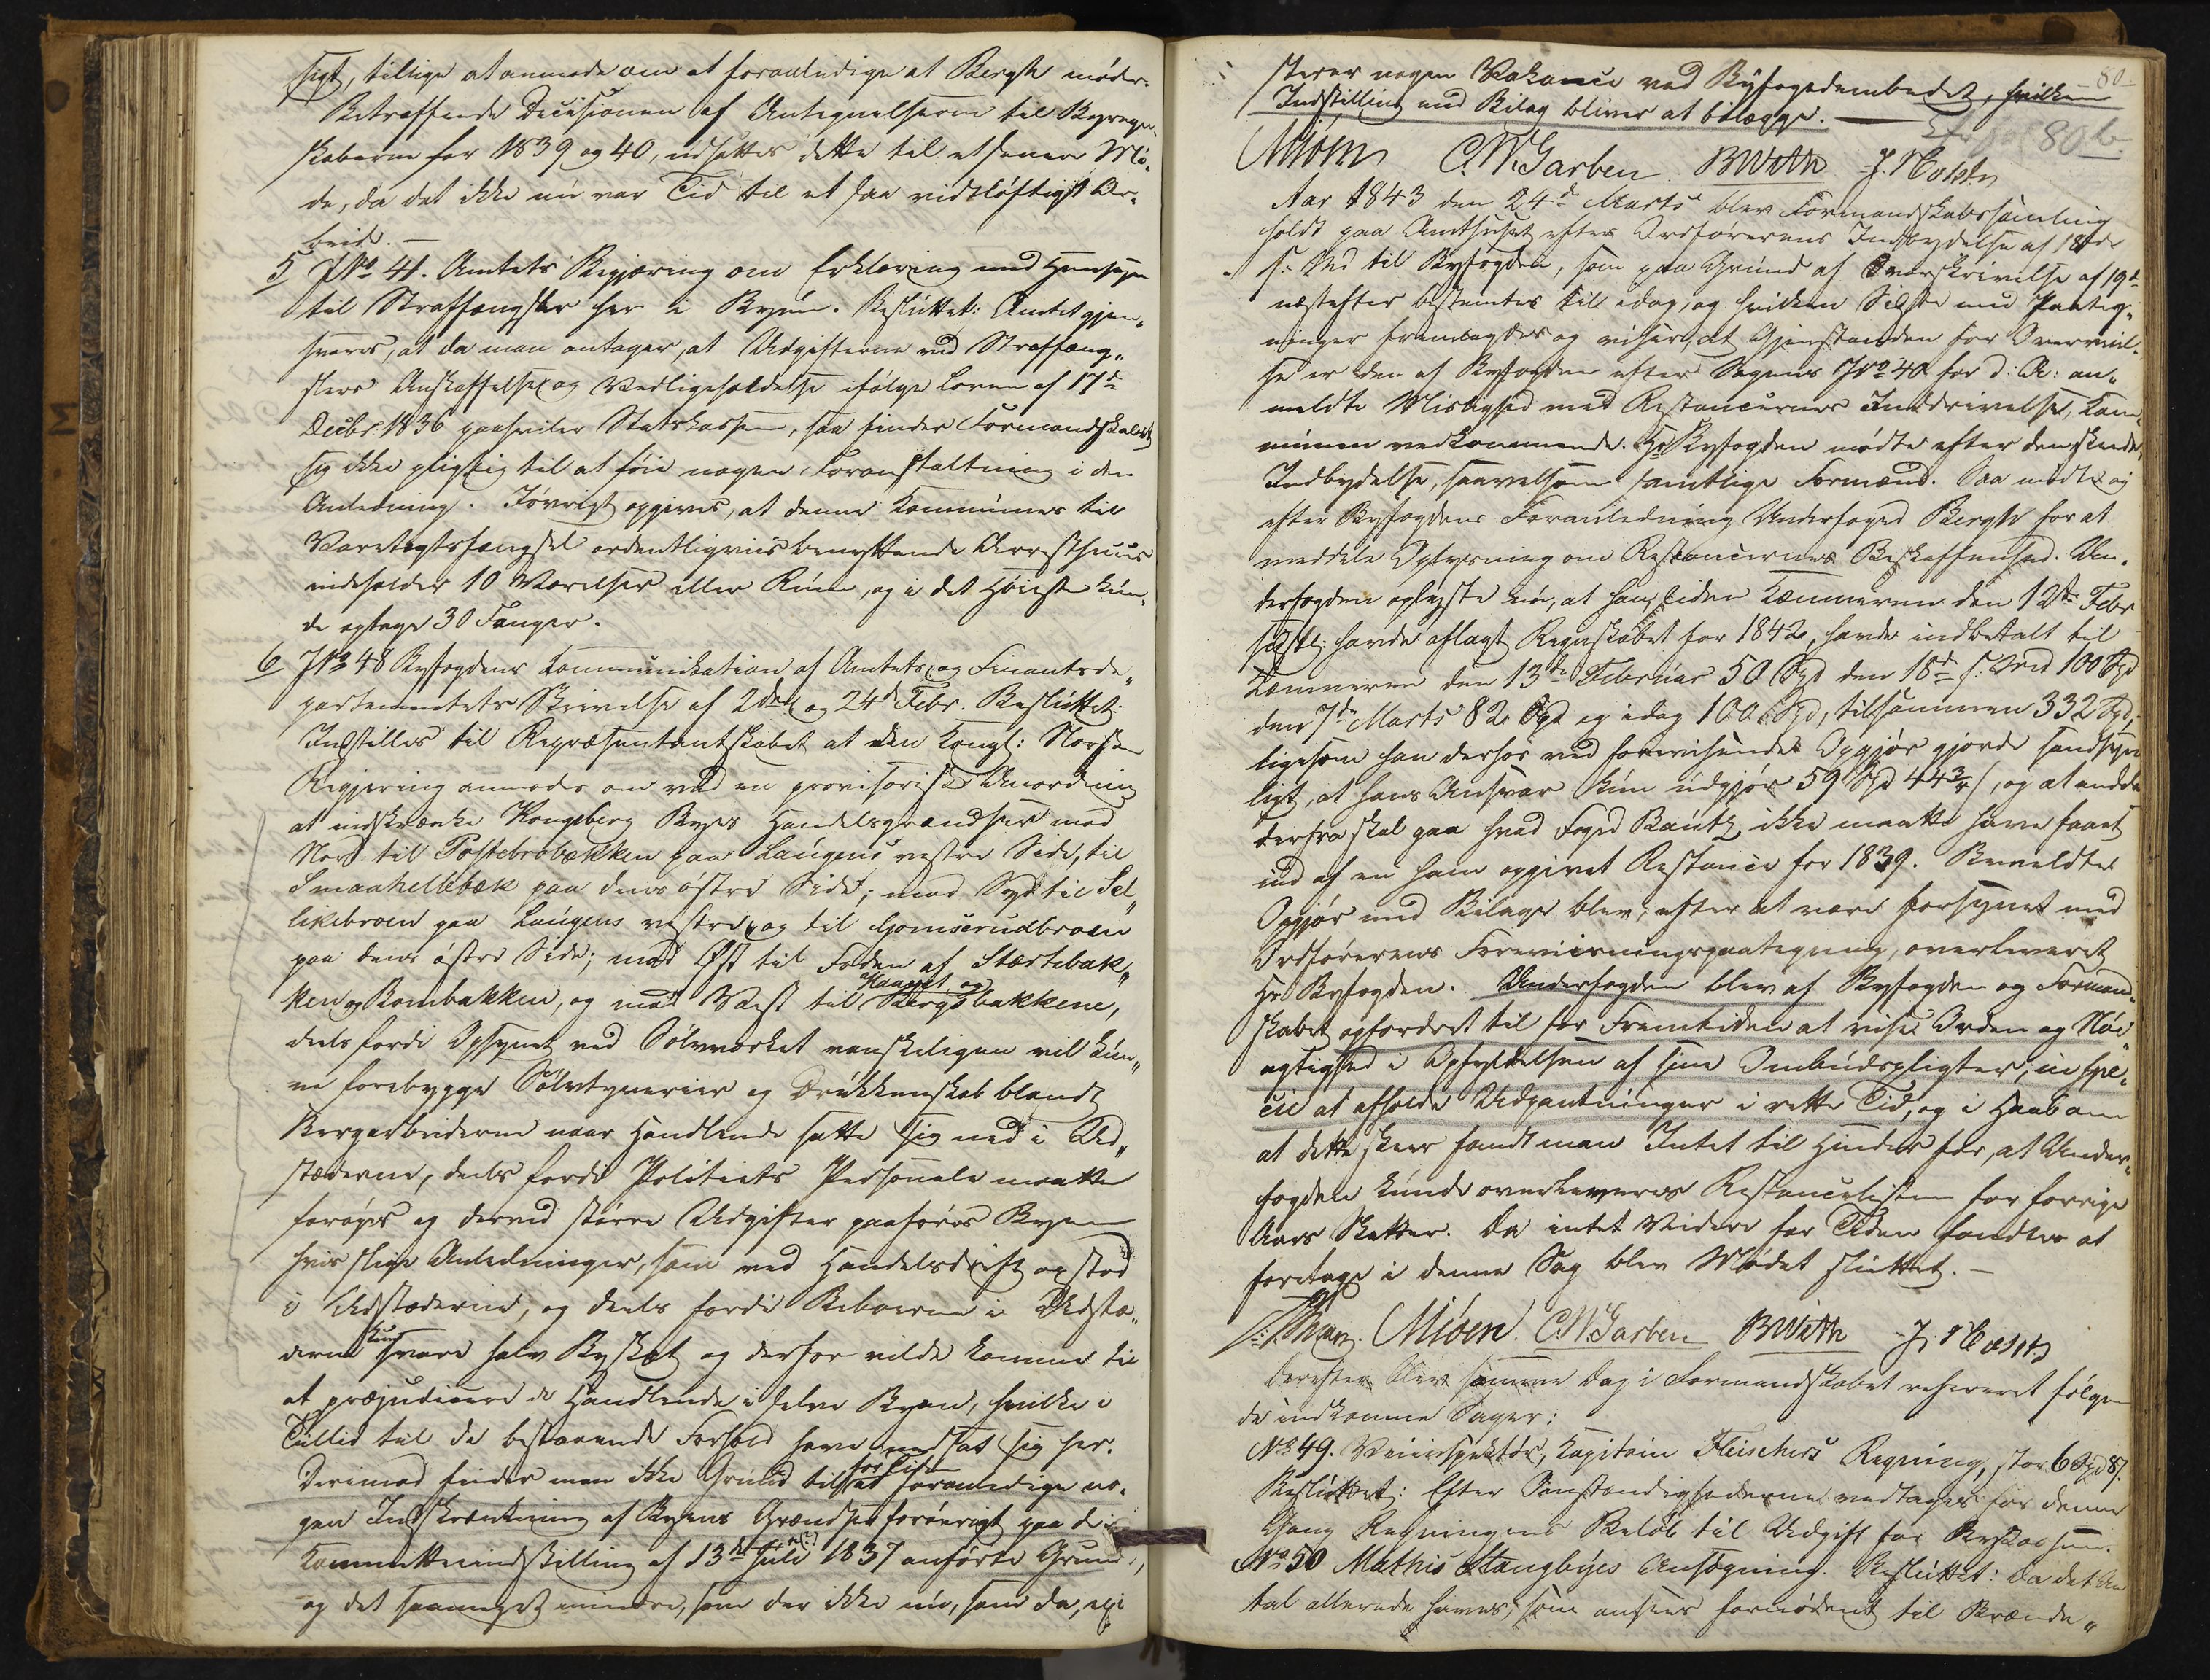 sigt, tillige at anmode om at foranledige at Bergh møder.
Betræffende Decisionen af Antegnelserne til Byregn-
skaberne for 1839 og 40, udsættes dette til et senere Mø-
de, da det ikke nu var Tid til et saa vidtløftigt Ar-
beide. —
5 JNo 41. Amtets Begjæring om Erklæring med Hensyn
til Straffængsler her i Byen. Besluttet: Amtet gjen-
svares, at da man antager, at Udgifterne ved Straffæng-
slers Anskaffelse og Vedligeholdelse ifølge Loven af 17de
Decbr 1836 paahviler Statskassen, saa finder Formandskabet
sig ikke pligtig til at føie nogen Foranstaltning i den
Anledning. Iøvrigt opgives, at denne Kommunes til
Varetægtsfængsel ordentligviis benyttende Arresthuus
indeholder 10 Værelser eller Rum, og i det Høieste kun-
de optage 30 Fanger.
6 JNo 48 Byfogdens Kommunikation af Amtets og Finantsde-
partementets Skrivelse af 2den og 24de Febr. Besluttet:
Indstilles til Repræsentantskabet at den Kongl: Norske
Regjering anmodes om ved en provisorisk Anordning
at indskrænke Kongsberg Byes Handelsgrændser mod
Nord til Postebrobækken paa Laugens vestre Side, til
Smaahellebæk paa dens østre Side; mod Syd til Sel-
likebroen paa Laugens vestre og til Gomserudbroen
paa dens østre Side; mod Øst til Foden af Stærtebak-
ken og Bombakken, og mod Vest til Haavet og Bergsbakkene,
deels fordi Opsynet ved Sølvværket vanskeligen vil kun-
ne forebygge Sølvtyverier og Drukkenskab blandt
Bergarbeiderne naar Handlende satte sig ned i Ud-
stæderne, deels fordi Politiets Personale maatte
forøges og derved større Udgifter paaføres Byen
hvis slige Anledninger, som ved Handelsdrift opstod
i Udstæderne, og deels fordi Beboerne i Udstæ-
derne kun svare halv Byskat og derfor vilde komme til
at præjudicere de Handlende i selve Byen, hvilke i
Tillid til de bestaaende Forhold have nedsat sig her.
Derimod finder man ikke Grund til for Tiden at foranledige no-
gen Indskrænkning af Byens Grændser forøvrigt paa de i
Committeeindstilling af 13de Juli 1837 anførte Grunde,
og det saameget mindre, som der ikke nu, som da, exi-
80
sterer nogen Vakance ved Byfogedembedet, hvilken
Indstilling med Bilag bliver at vedlægge. —
80 b.
Miøen C. W. Garben. BWeth J. Holst
Aar 1843 den 24de Marts blev Formandskabssamling
holdt paa Amthuset efter Ordførerens Indbydelse af 18de
s: Md til Byfogden, som paa Grund af Overskrivelse af 19de
næstefter bestemtes til idag, og hvilken Sidste med Paateg-
ninger fremlagdes og viser, at Gjenstanden for Overveiel-
se er den af Byfogden efter Sagens JNo 40 for d: A: an-
meldte Mislighed med Restancernes Inddrivelse, Kom-
munen vedkommende. Hr Byfogden mødte efter den skeede
Indbydelse, saavelsom samtlige Formænd. Saa mødte og
efter Byfogdens Foranledning Underfoged Bergh for at
meddele Oplysning om Restancernes Beskaffenhed. Un-
derfogden oplyste nu, at han, siden Kæmneren den 12te Febr
sidstl: havde aflagt Regnskabet for 1842, havde indbetalt til
Kæmneren den 13de Februar 50 Spd den 18de s: Md 100 Spd
den 7de Marts 82 Spd og idag 100 Spd, tilsammen 332 Spd,
ligesom han derhos ved foreviisende Opgjør gjorde sandsyn-
ligt, at hans Ansvar kun udgjør 59 Spd 44¾ s, og at endda
derfra skal gaa hvad Foged Bautz ikke maatte have faaet
ind af en ham opgivet Restance for 1839. Bemeldte
Opgjør med Bilage blev, efter at være forsynet med
Ordførerens Foreviisningspaategning, overleveret
Hr Byfogden. Underfogden blev af Byfogden og Formand-
skabet opfordret til for Fremtiden at vise Orden og Nøi-
agtighed i Opfyldelsen af sine Ombudspligter, in spe-
cie at afholde Udpantninger i rette Tid, og i Haab om
at dette skeer fandt man Intet til Hinder for, at Under-
fogden kunde overleveres Restancelisten for forrige
Aars Skatter. Da intet Videre for Tiden fandtes at
foretage i denne Sag blev Mødet sluttet. —
Miöen. C. W. Garben BWeth J. Holst
Derefter blev samme Dag i Formandskabet refereret følgen-
de indkomne Sager:
No 49. Veiinspekteur, Kapitain Fleischers Regning, stor 6 Spd 8 s.
Besluttet: Efter Omstændighederne vedtages for denne
Gang Regningens Beløb til Udgift for Bykassen.
No 50 Mathis Stangbyes Ansøgning. Besluttet: Da det An-
tal allerede haves, som ansees fornødent til Brænde-